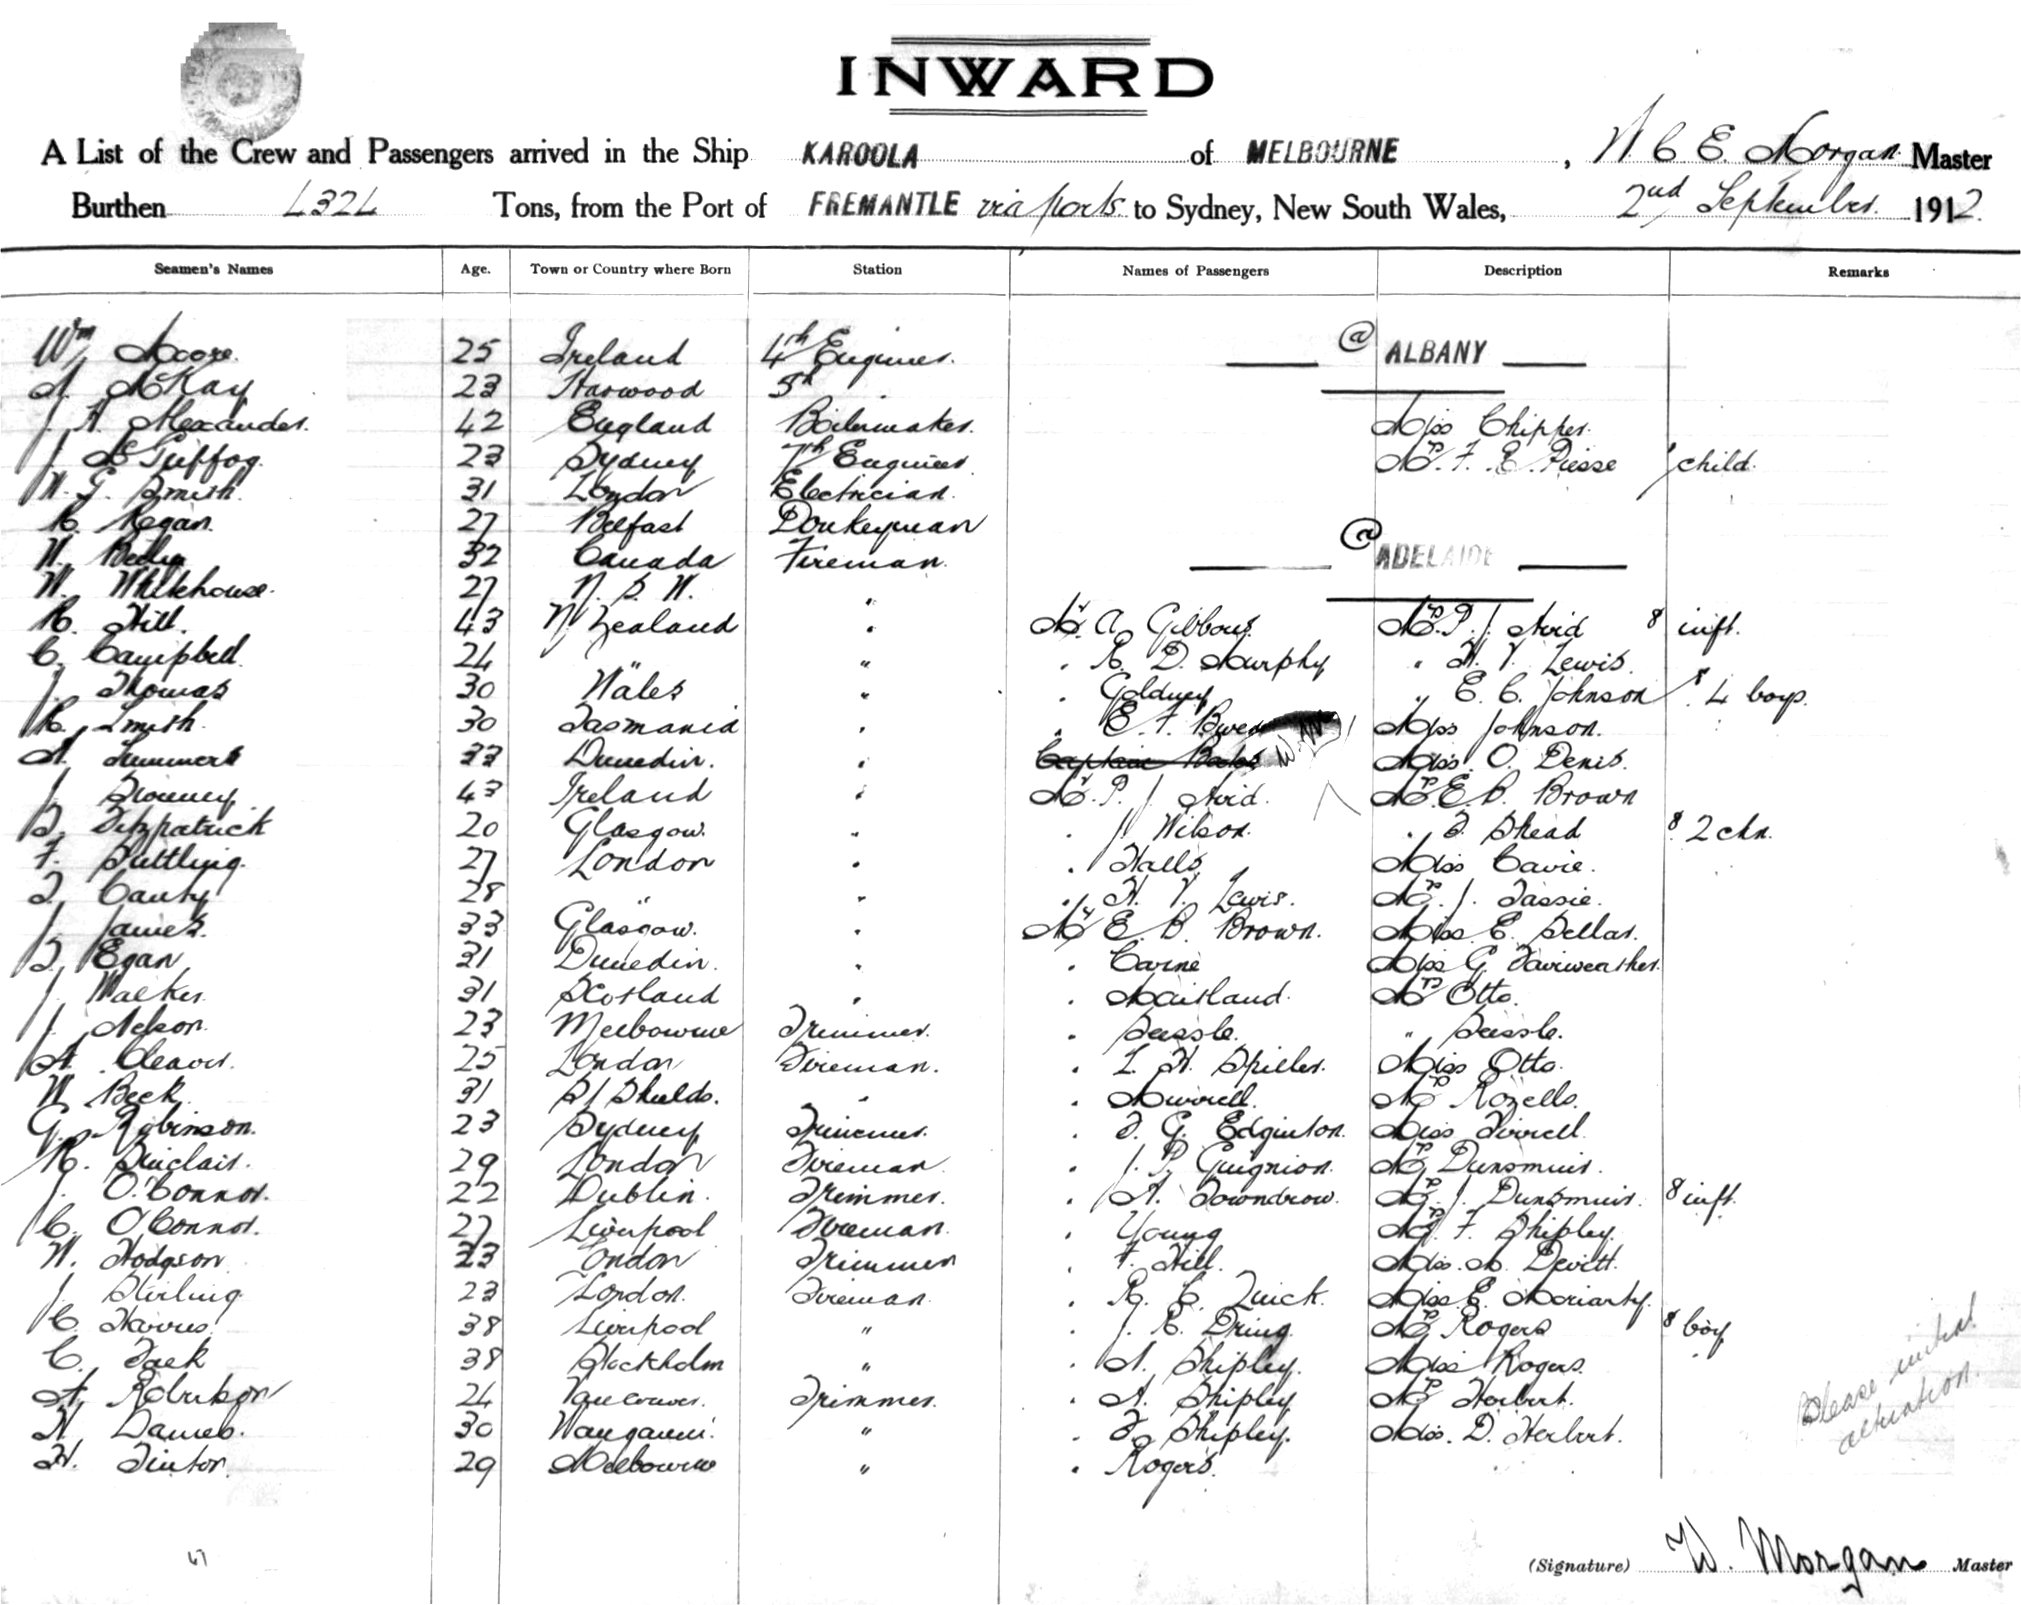 INWARD
A List of the Crew and Passengers arrived in the Ship KAROOLA of MELBOURNE, W. C. E. Morgan Master
Burthen Tons, from the Port of FREMANTLE via ports to Sydney, New South Wales, 2nd September 1912.
Seamen's Names Age. Town or Country where Born Station Names of Passengers Description Remarks
Wm Moore. 25 Ireland 4th Engineer. @ ALBANY
McKay 23 Harwood 5th
J. A. Alexander. 42 England Boilermaker. Miss Chipper.
J. 23 Sydney 7th Engineer Mrs. F. E. Piesse & child.
W. G. Smith. 31 London Electrician.
R. Regan. 27 Belfast Donkeyman @ ADELAIDE
W. 32 Canada Fireman.
W. Whitehouse. 27 N. S. W. "
R. Hill. 43 N. Zealand " Mr. A. Gibbons. Mrs. P. J. Avid & inft.
C. Campbell. 24 " " " R. D. Murphy " H. V. Lewis.
J. Thomas 30 Wales " " Goldney " E. C. Johnson & 4 boys.
R. Smith. 30 Tasmania " " E. F. Miss Johnson.
A. Summers 33 Dunedin. " Captain Miss O. Denis.
J. Downey. 43 Ireland " Mr. P. J. Avid. Mrs E. B. Brown
Fitzpatrick 20 Glasgow. " " J. Wilson. " Shead & 2 chn.
F. Suttling. 27 London " " Halls Miss Cavie.
T. Canty 28 " " " H. V. Lewis. Mrs. J. Tassie.
J. James. 33 Glasgow. " Mr E. B. Brown. Miss E. Sellar.
T. Egan 31 Dunedin. " " Carne Miss G. Fairweather.
J. Walker. 31 Scotland " " Maitland. Mrs Otto.
J. Nelson. 23 Melbourne Trimmer. "
A. Cleaver. 25 London Fireman. " L. H. Spiller. Miss Otto.
W. Beck 31 S/ Shields. " " Murrell. Mrs Rozells.
G. Robinson. 23 Sydney Trimmer. " T. G. Edginton. Miss Tirrell.
R. Sinclair. 29 London Fireman " J. P. Guignion. Mrs Dunsmuir.
J. O'Connor. 22 Dublin. Trimmer. " A. Towndrow. Mrs. J. Dunsmuir. & inft.
C. O'Connor. 27 Liverpool Fireman. " Young Mrs. F. Shipley.
W. Hodgson 23 London Trimmer " F. Hill. Miss. M. Devitt.
J. Stirling 23 London. Fireman. " R. C. Quick. Miss E. Moriarty.
C. Harris. 38 Liverpool " " J. R. Dring. Mrs Rogers & boy
C. Jack 38 Stockholm " " A. Shipley. Miss Rogers.
A. Robertson 24 Vancouver. Trimmer. " A. Shipley Mrs Herbert.
H. Daniels. 30 Wanganui. " " Shipley. Miss. D. Herbert.
H. Tinton. 29 Melbourne " " Rogers.
Please initial
alteration.
(Signature) W. Morgan Master